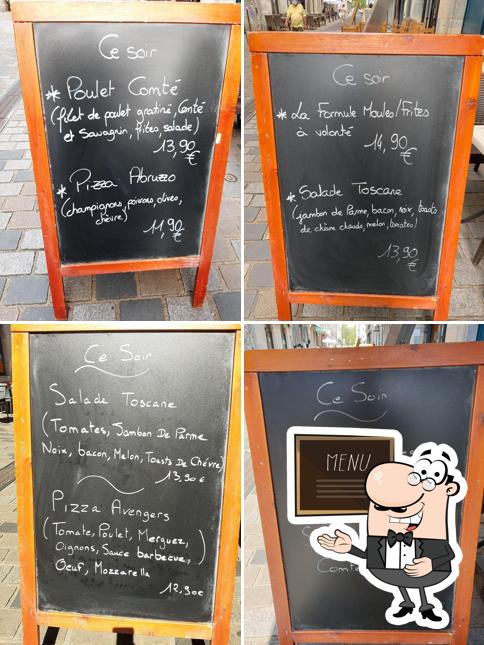 Ce soir
* Poulet Comté
(filet de poulet gratiné, Comté
et Savagnin, frites, salade)
13,90
€
* Pizza Abruzzo
(champignons, poivrons, olives,
chèvre)
11,90
€
Ce soir
* La Formule Moules/Frites
à volonté
14,90
€
* Salade Toscane
(jambon de Parme, bacon, noix, toasts
de chèvre chauds, melon, tomates)
13,90
€
Ce Soir
Salade Toscane
(Tomates, Jambon De Parme
Noix, bacon, Melon, Toasts De Chèvre)
13,90 €
Pizza Avengers
(Tomate, Poulet, Merguez,
Oignons, Sauce barbecue,
Oeuf, Mozzarella)
12,90€
Ce Soir
MENU
Comté